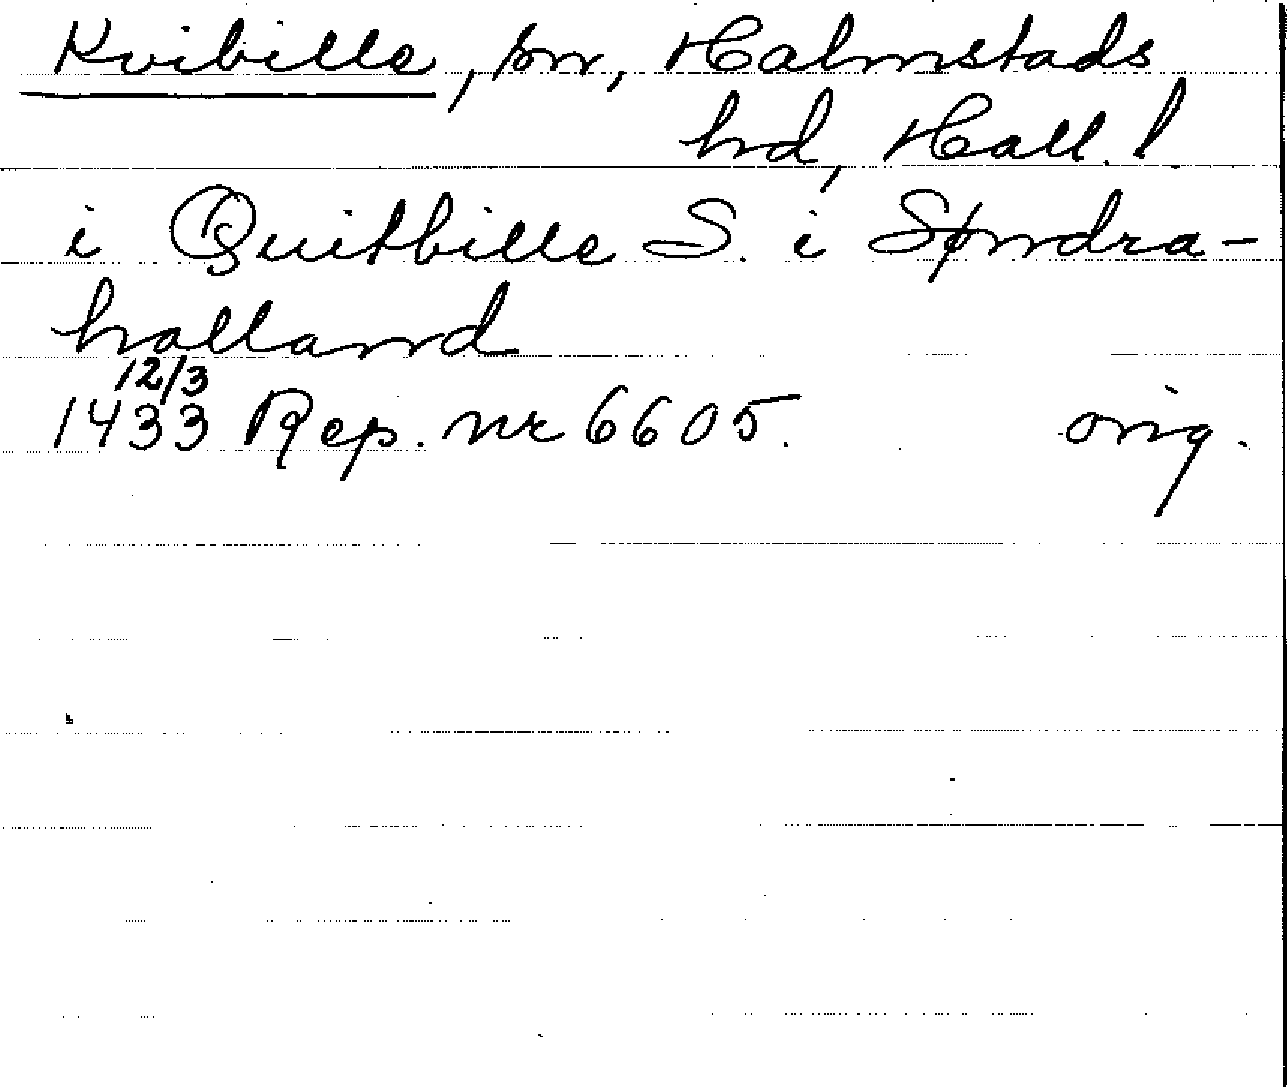 Kvibille, sn, Halmstads
hd, Hall. l.
i Quitbille S. i SØndra-
halland
12/3
1433 Rep. nr 6605. orig.